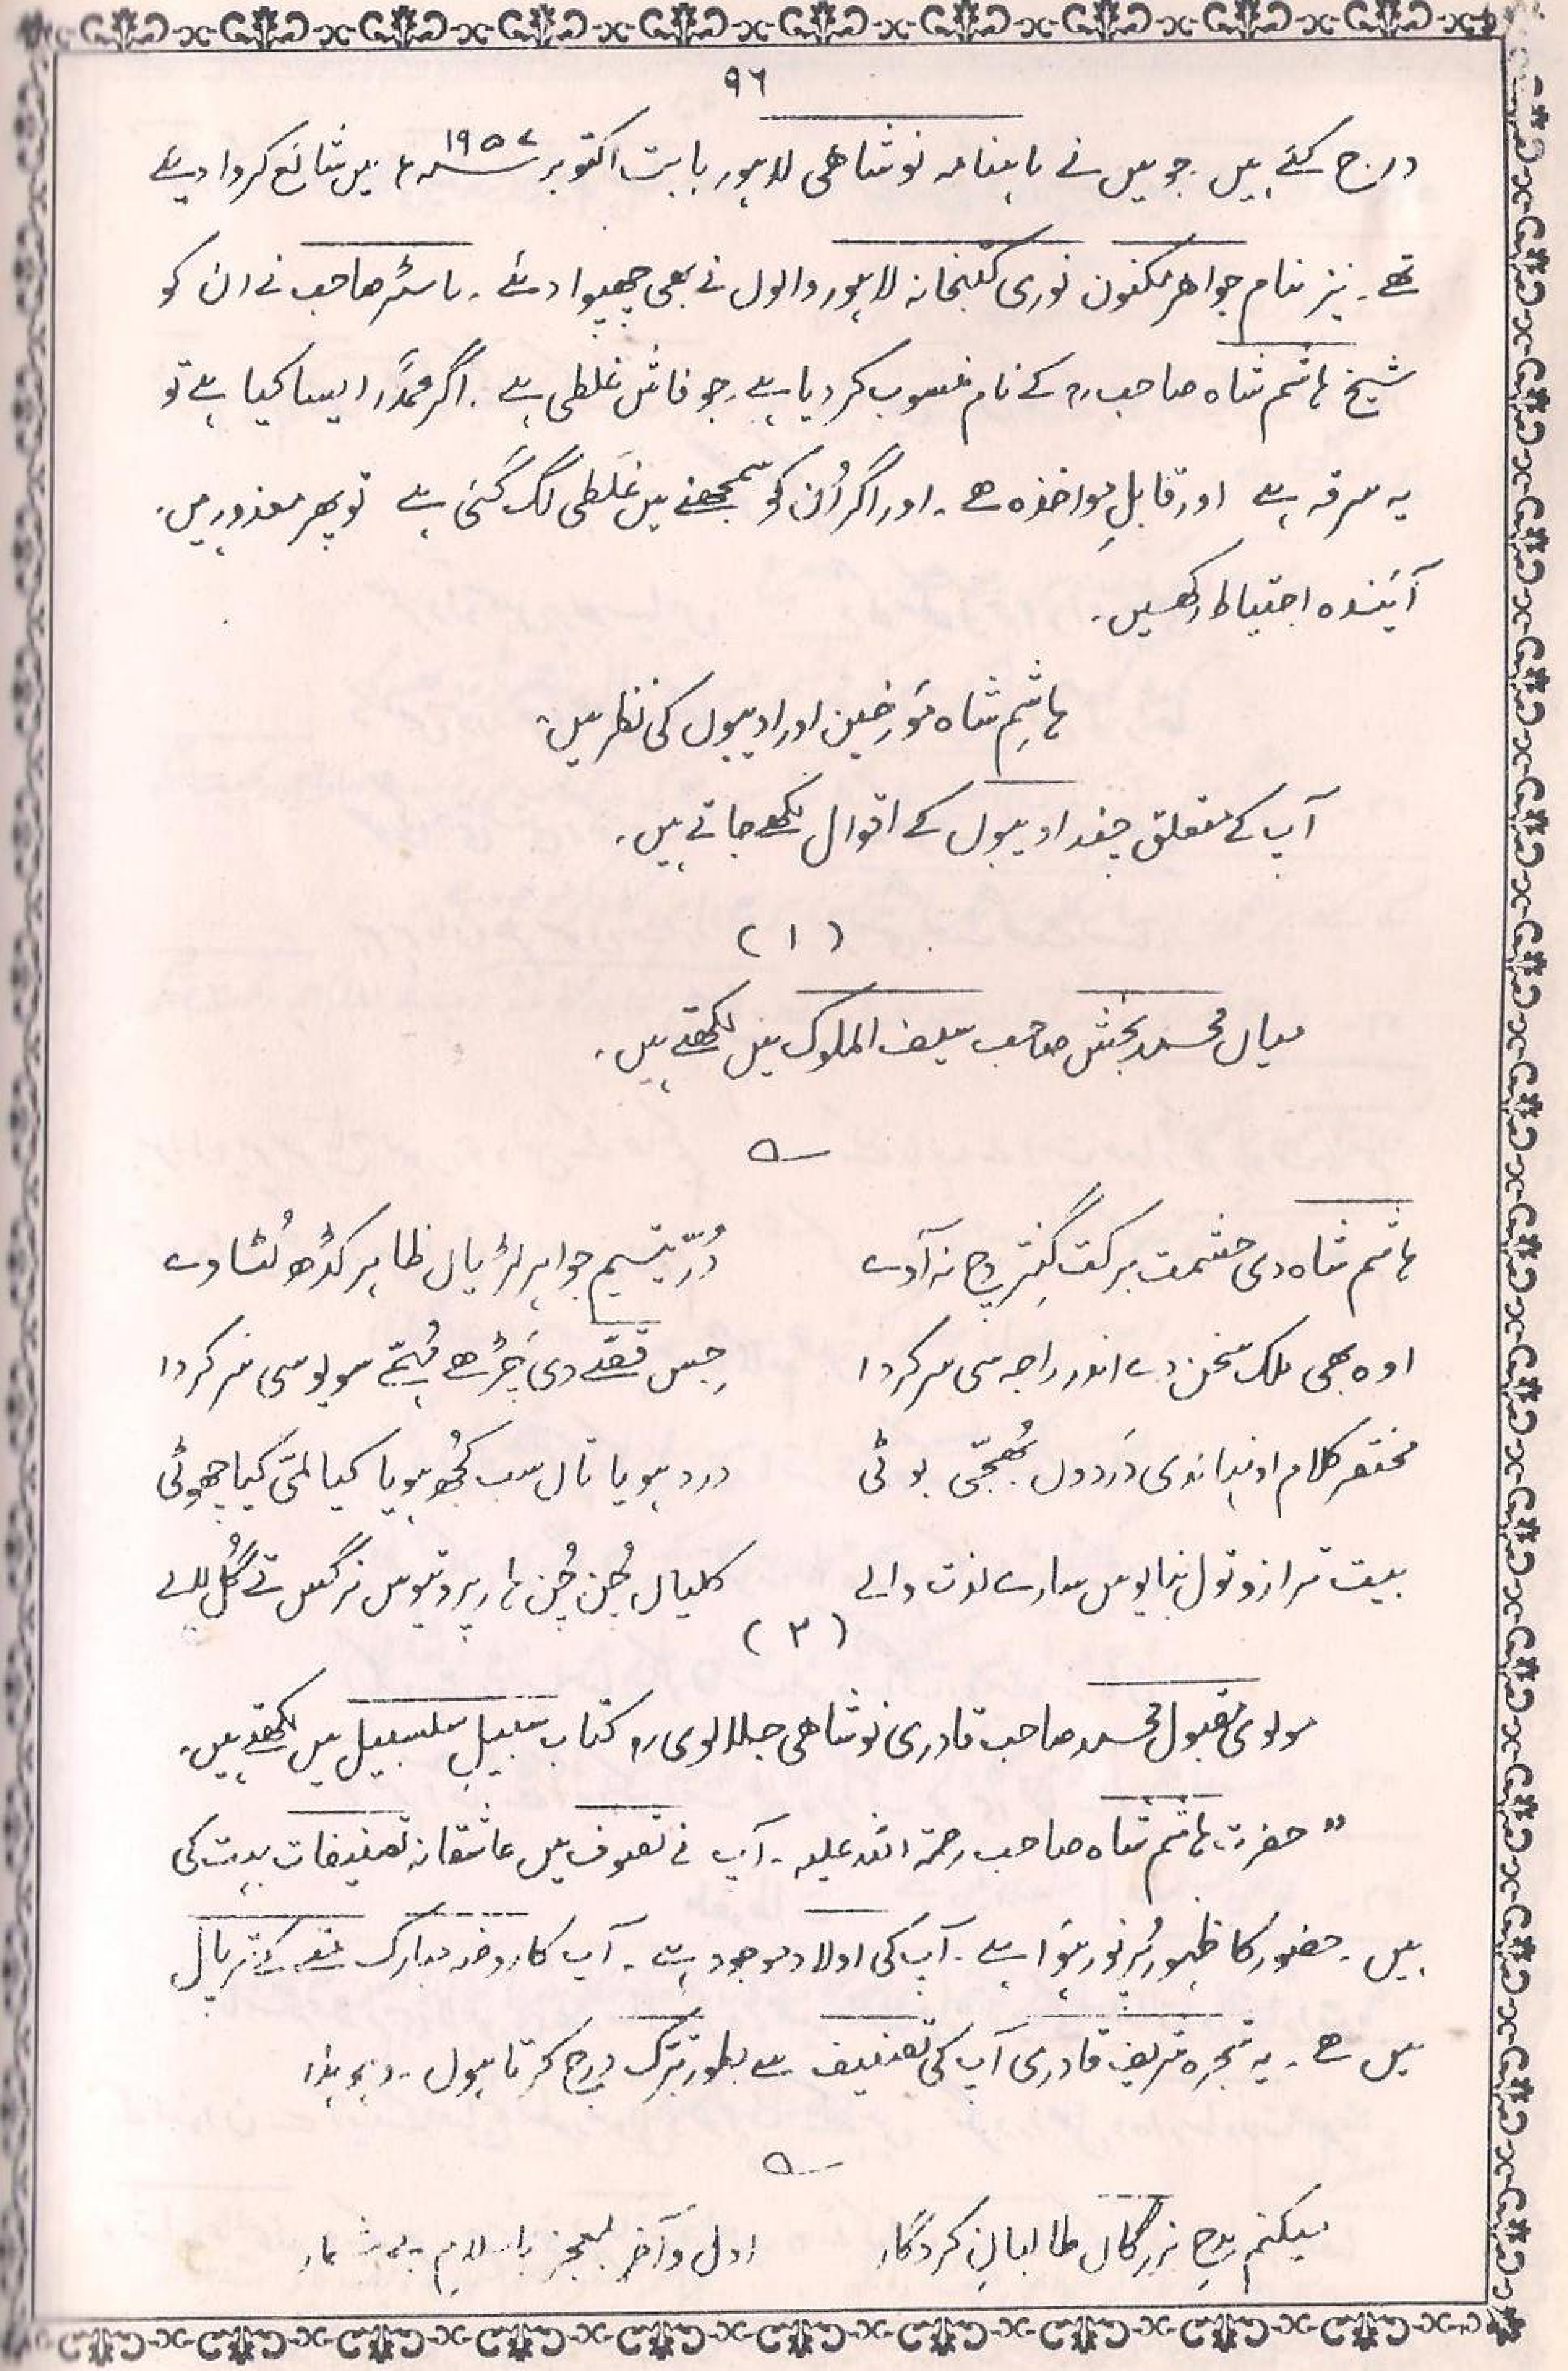 ۹۶
درج کئے ہیں. جو میں نے ماہنامہ نوشاھی لاہور بابت اکتوبر ۱۹۵۷ء میں شائع کروا دیئے
تھے۔ نیز بنام جواھر مکنون نوری کتبخانہ لاہور والوں نے بھی چھپوا دئے۔ ماسٹر صاحب نے ان کو
شیخ ہاشم شاہ صاحب رح کے نام منسوب کر دیا ہے. جو فاش غلطی ہے۔ اگر عمداً ایسا کیا ہے تو
یہ سرقہ ہے اور قابلِ مواخذہ ھے۔ اور اگر اُن کو سمجھنے میں غَلَطی لگ گئی ہے تو پھر معذور ہیں.
آئیندہ احتیاط رکھیں۔
ہاشِم شاہ مؤرخین اور ادیبوں کی نظر میں
آپ کے متعلق چند ادیبوں کے اقوال لکھے جاتے ہیں۔
(۱)
میاں محمد بخش صاحب سیف الملوک میں لکھتے ہیں۔
ہاشم شاہ دی حشمت برکت گِنتر وِچ نہ آوے دُرِّ یتیم جواہر لڑیاں ظاہر کڈھ لُٹاوے
اوہ بھی ملک سُخن دے اندر راجہ سی سر کردا جِس قصّے دی چَڑھے مُہمّے سویو سی سر کردا
مختصر کلام اونہاندی دَرد دل بھُجّی بوٹی درد ہویا تاں سب کُجُھ ہویا کیا لمّی کیا چھوٹی
بیت ترازو تول بنایوس سارے لذت والے کلیاں چُن چُن ہار پروتیوس نرگس تے گُل لالے
(۲)
مولوی مقبول محمد صاحب قادری نوشاھی جلالوی رح کتاب سبیلِ سلسبیل میں لکھتے ہیں۔
” حضرت ہاشم شاہ صاحب رحمۃ اللہ علیہ۔ آپ نے تصوف میں عاشقانہ تصنیفات بہت کی
ہیں۔ حضور کا ظہور پُر نور ہؤا ہے۔ آپ کی اولاد موجود ہے۔ آپ کا روضہ مبارک تھرپال
میں ھے۔ یہ شجرہ شریف قادری آپ کی تصنیف سے بطور تبرّک درج کرتا ہوں۔ وہو ہٰذا
میکنم مدحِ بزرگاں طالبانِ کردگار اول و آخر بعجز باسلامِ بے شمار